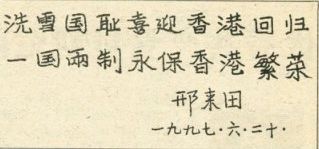 洗雪国耻喜迎香港回归
一国两制永保香港繁荣
邢来田
一九九七·六·二十·